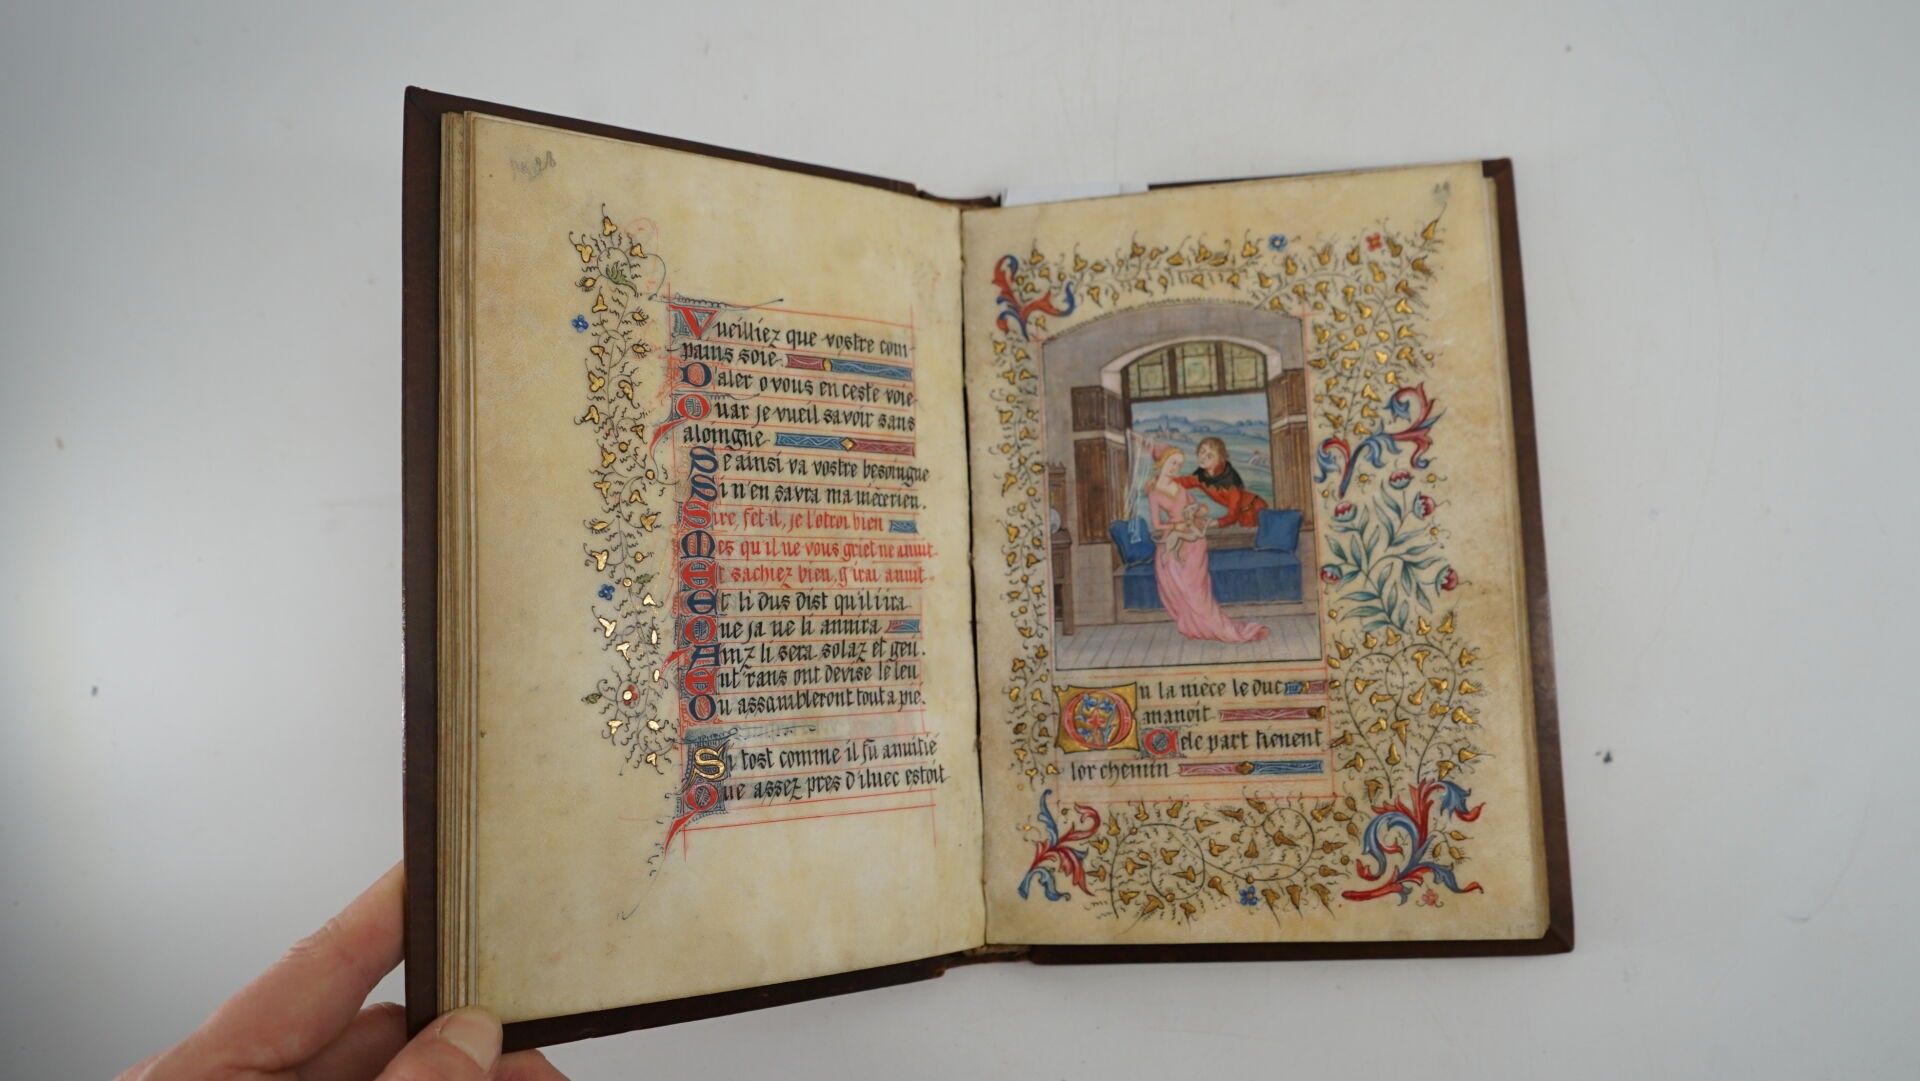 Vueilliez que vostre com-
pains soie
D'aler o vous en ceste voie
Quar je vueil savoir sans
aloingne
Se ainsi va vostre besoingne
Si n'en savra ma niece rien.
Sire, fet-il, je l'otroi bien
Mes qu'il ne vous griet ne anuit
Et sachiez bien, g'irai anuit
Et li dus dist qu'il i ira
Que ja ne li anuira
Ainz li sera solaz et geu.
Ent'rans ont devise le leu
Ou assambleront tout a pié.
Si tost comme il fu anuitié
Que assez pres d'iluec estoit
29
Ou la nièce le duc
manoit
Cele part tienent
lor chemin